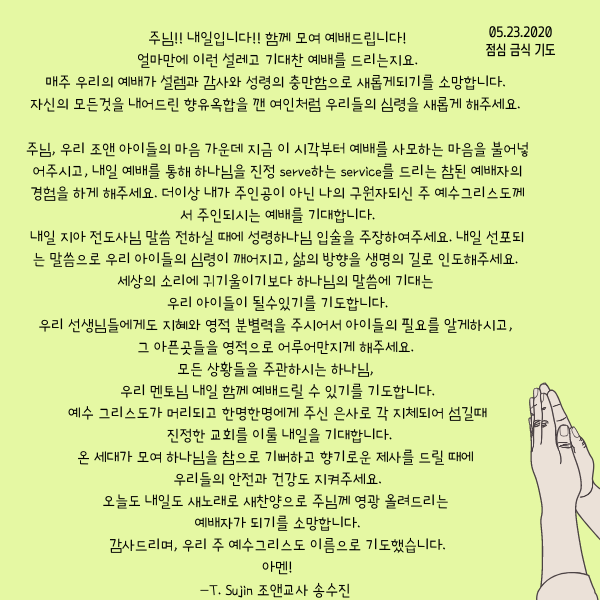 05.23.2020
점심 금식 기도
주님!! 내일입니다!! 함께 모여 예배드립니다!
얼마만에 이런 설레고 기대찬 예배를 드리는지요.
매주 우리의 예배가 설렘과 감사와 성령의 충만함으로 새롭게되기를 소망합니다.
자신의 모든것을 내어드린 향유옥합을 깬 여인처럼 우리들의 심령을 새롭게 해주세요.
주님, 우리 조앤 아이들의 마음 가운데 지금 이 시각부터 예배를 사모하는 마음을 불어넣
어주시고, 내일 예배를 통해 하나님을 진정 serve하는 service를 드리는 참된 예배자의
경험을 하게 해주세요. 더이상 내가 주인공이 아닌 나의 구원자되신 주 예수그리스도께
서 주인되시는 예배를 기대합니다.
내일 지아 전도사님 말씀 전하실 때에 성령하나님 입술을 주장하여주세요. 내일 선포되
는 말씀으로 우리 아이들의 심령이 깨어지고, 삶의 방향을 생명의 길로 인도해주세요.
세상의 소리에 귀기울이기보다 하나님의 말씀에 기대는
우리 아이들이 될수있기를 기도합니다.
우리 선생님들에게도 지혜와 영적 분별력을 주시어서 아이들의 필요를 알게하시고,
그 아픈곳들을 영적으로 어루어만지게 해주세요.
모든 상황들을 주관하시는 하나님,
우리 멘토님 내일 함께 예배드릴 수 있기를 기도합니다.
예수 그리스도가 머리되고 한명한명에게 주신 은사로 각 지체되어 섬길때
진정한 교회를 이룰 내일을 기대합니다.
온 세대가 모여 하나님을 참으로 기뻐하고 향기로운 제사를 드릴 때에
우리들의 안전과 건강도 지켜주세요.
오늘도 내일도 새노래로 새찬양으로 주님께 영광 올려드리는
예배자가 되기를 소망합니다.
감사드리며, 우리 주 예수그리스도 이름으로 기도했습니다.
아멘!
-T. Sujin 조앤교사 송수진